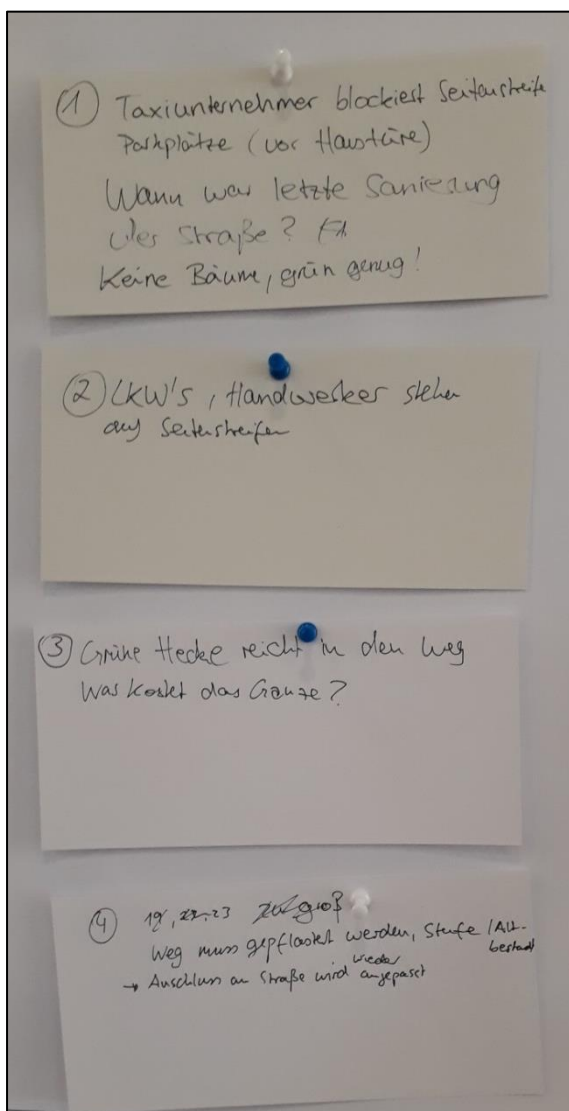 ① Taxiunternehmer blockiert Seitenstreife
Parkplätze (vor Haustüre)
Wann war letzte Sanierung
der Straße?
Keine Bäume, grün genug!
② LKW's, Handwerker stehen
auf Seitenstreifen
③ Grüne Hecke reicht in den Weg
Was kostet das Ganze?
④ 19, 23 groß
Weg muss gepflastert werden, Stufe / Alt-
bestand
wieder
→ Anschluss an Straße wird angepasst